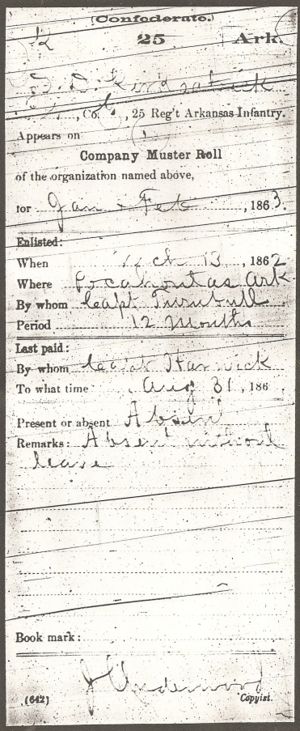 (Confederate.)
K 25 Ark.
Co. , 25 Reg't Arkansas Infantry.
Appears on
Company Muster Roll
of the organization named above,
for Jan & Feb , 1863.
Enlisted:
When Mch 13, 1862
Where Pocahontas Ark
By whom Capt Turnbull
Period 12 Months
Last paid:
By whom Warwick
To what time Aug 31, 186
Present or absent Absent
Remarks: Absent without
leave
Book mark:
J Underwood
(642) Copyist.